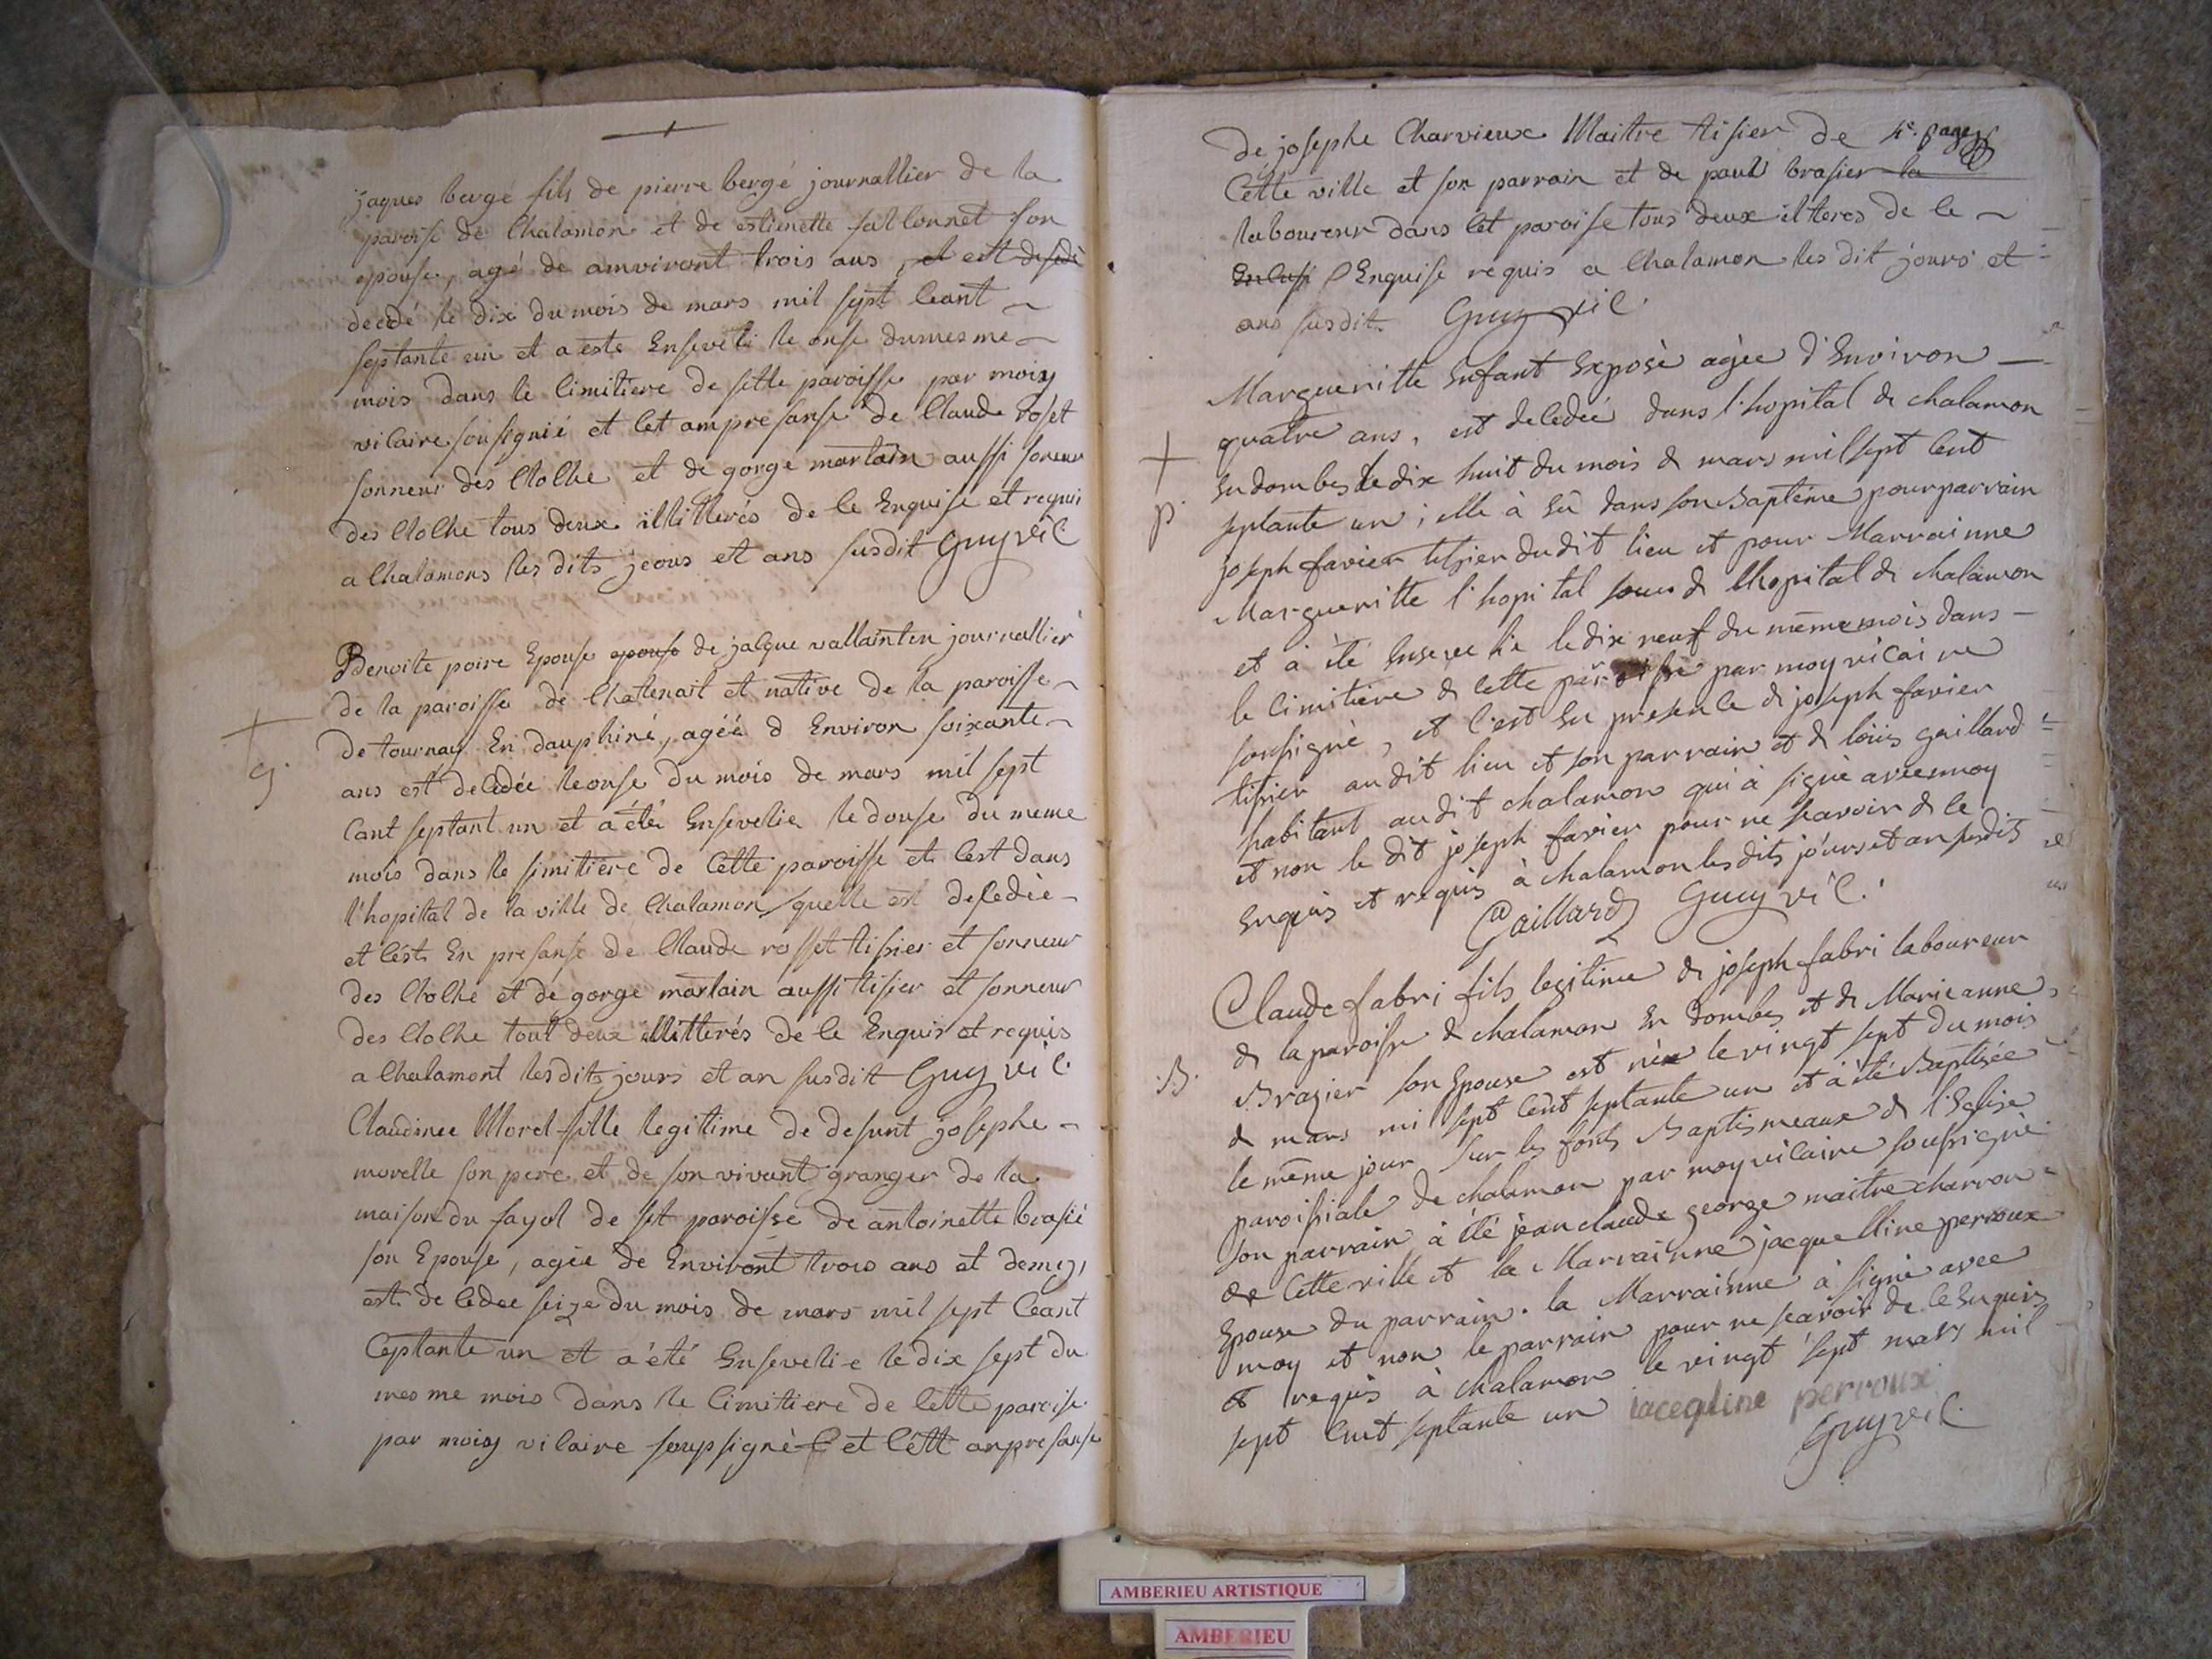 jaques bergé fils de pierre bergé journallier de la
paroise de Chalamon et de estienette fatlonnet son
epouse, agé de amviront trois ans, et est desedé
decedé le dix du mois de mars mil sept Ceant
septante un et a este Enseveli le onse du mesme
mois dans le Cimitiere de sette paroisse par moiy
vicaire sousignié et Cet ampresanse de Claude roset
sonneur des Cloche et de gorge martain aussi soneur
des Cloche tous deux illitterés de Ce Enquise et requi
a Chalamons les dits jeous et ans susdit Guy vic
Benoite poire Epouse epouse de jacque vallaintin journallier
de la paroisse de Chatenait et native de la paroisse
de tournay En dauphiné, agéé d Environ soixante
ans est decedée le onse du mois de mars mil sept
Cant septant un et a été Ensevelie le douse du meme
mois dans le simitiere de Cette paroisse et Cest dans
l'hopital de la ville de Chalamon quelle est desedèe
et Cest En presanse de Claude rosset tisier et sonneur
des Cloche et de gorge martain aussi tisier et sonneur
des Cloche tout deux illitterés de Ce Enquis et requis
a Chalamont les dits jours et an susdit Guy vic
Claudinee Morel fille legitime de defunt josephe
morelle son pere et de son vivant granger de la
maison du fayol de set paroisse de antoinette brasié
son Epouse, agée de Environt trois ans et demiy,
est decedee seize du mois de mars mil sept Ceant
Ceptante un et a été Ensevelie le dix sept du
mesme mois dans le Cimitiere de Cette paroise
par moiy vicaire soupsigné et Cett anpresanse
de josephe Charvieux Maitre tisier de 4e. page
Cette ville et son parrain et de paul brasier la
laboureur dans Cet paroisse tous deux ilteres de Ce
Enquise requis a Chalamon les dit jours et
ans susdit. Guy vic
Margueritte Enfant Exposè agèe d'Environ
+ quatre ans, est decedeé dans l'hopital de chalamon
En dombes le dix huit du mois de mars mil sept Cent
p. septante un; elle à Eû dans son Baptéme pour parrain
joseph favier tissier dudit lieu et pour Marrainne
Margueritte l'hopital soeur de l'hopital de chalamon
et à été Ensevelie le dix neuf du même mois dans
le Cimitière de Cette paroisse par moy vicaire
soussignè, et C'est En presence de joseph favier
tissier audit lieu et son parrain et de loüis gaillard
habitant audit chalamon qui à signè avec moy
et non le dit joseph favier pour ne scavoir de Ce
Enquis et requis à chalamon les dits jours et an susdits
Gaillard Guy vic.
Claude fabri fils legitime de joseph fabri laboureur
de la paroisse de chalamon En Dombes et de Marieanne
.B. Brazier son Epouse est nèe le vingt sept du mois
de mars mi sept Cent septante un et à été Baptisée
le même jour sur les fonts Baptismeaux de l'Eglise
paroissiale de chalamon par moy vicaire soussignè
son parrain à été jean claude george maitre charron
de Cette ville et la Marrainne jacquelline perroux
Epouse du parrain. la Marrainne à signè avec
moy et non le parrain pour ne scavoir de Ce Enquis
et requis à chalamon le vingt sept mars mil
sept Cent septante un iaceqline perroux
Guy vic.
AMBERIEU ARTISTIQUE
AMBERIEU